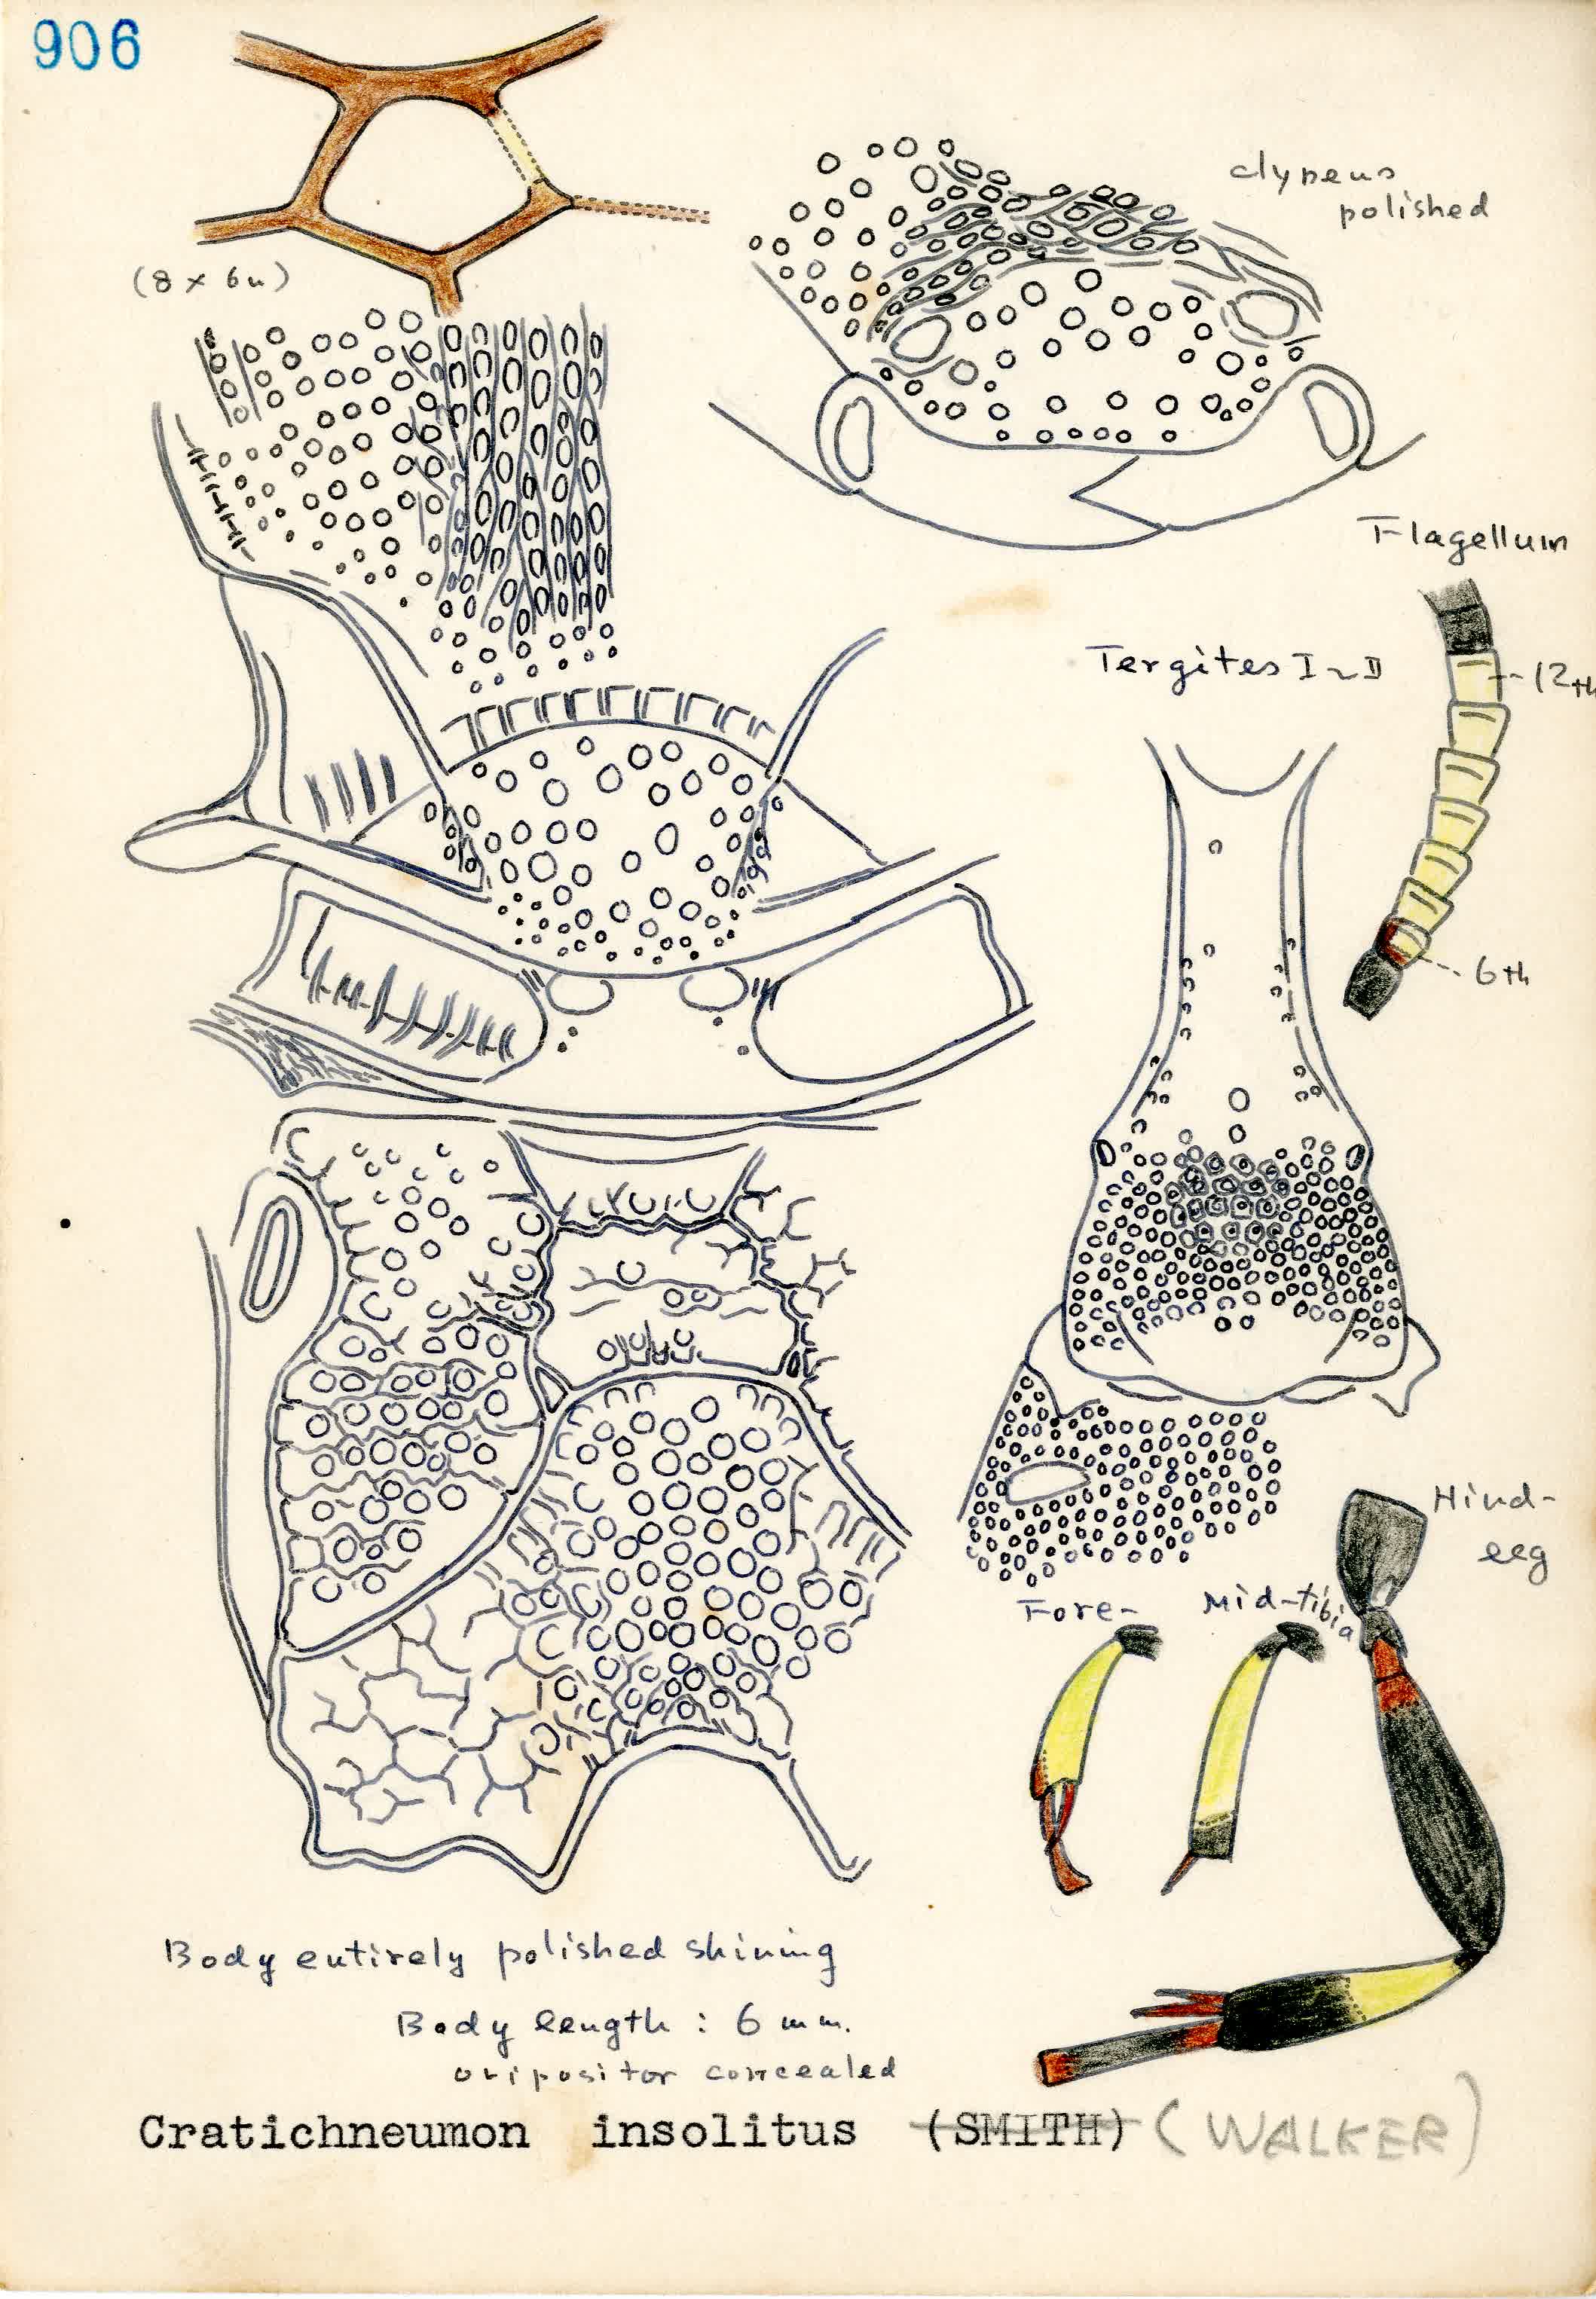 906
clypeus
polished
(8 x 6u)
Flagellum
Tergites I~II
12th
6th
Hind-
leg
Fore-
Mid-tibia
Body entirely polished shining
Body length : 6 mm.
ovipositor concealed
Cratichneumon insolitus (SMITH) (WALKER)